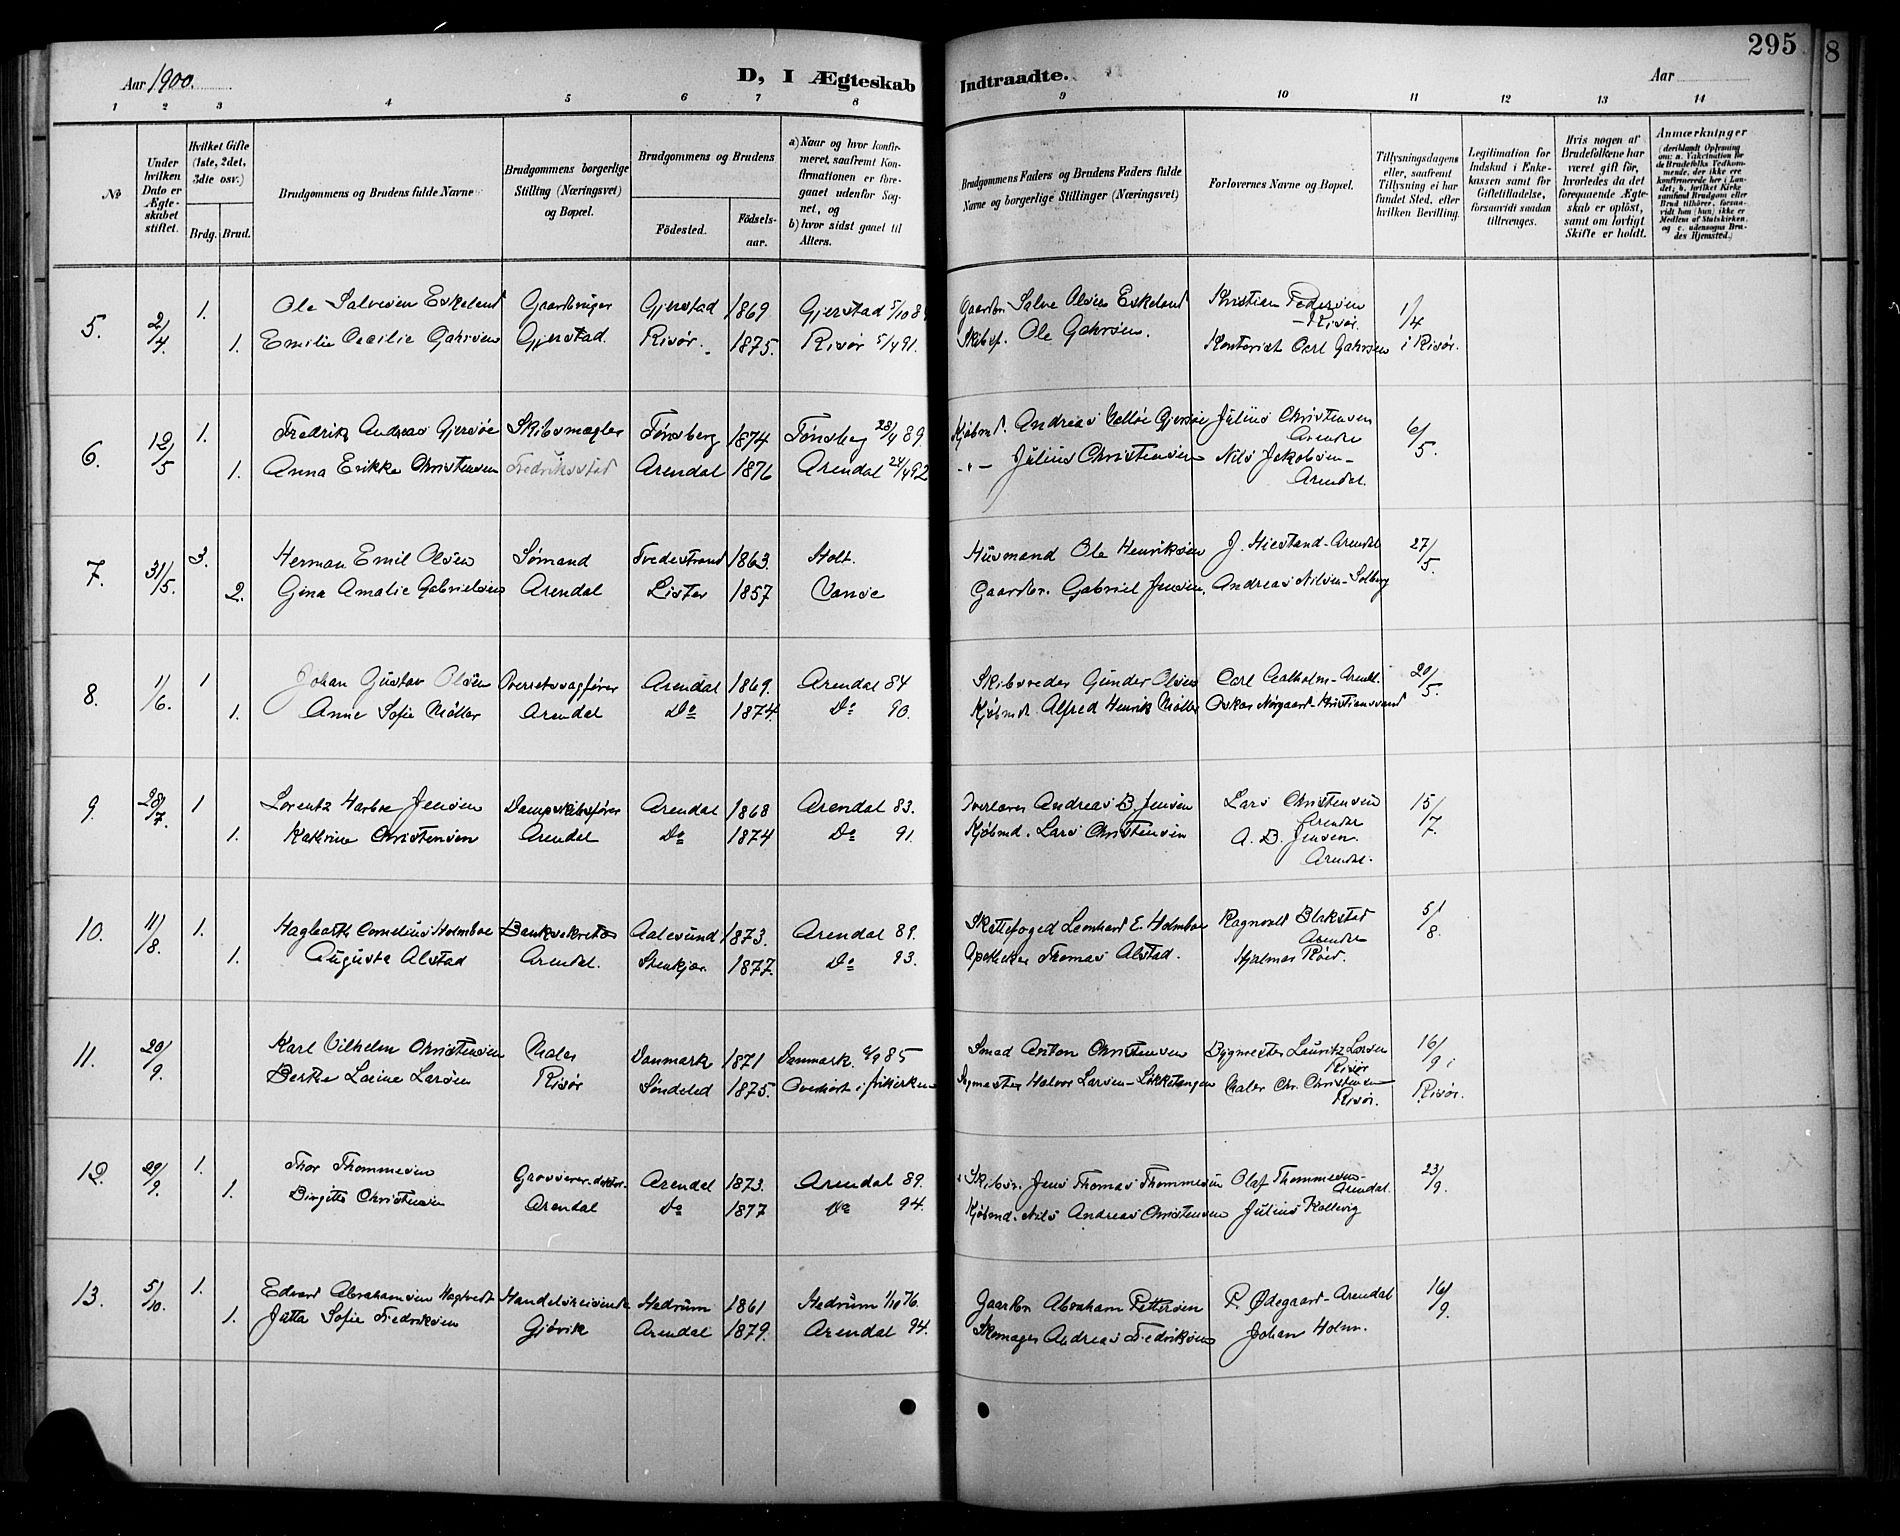 295
8
Aar 1900.
D, I Ægteskab Indtraadte.
Aar
1 2 3 4 5 6 7 8 9 10 11 12 13 14
No
Under hvilken Dato er Ægteskabet stiftet.
Hvilket Gifte (1ste, 2det, 3die osv.)
Brdg. Brud.
Brudgommens og Brudens fulde Navne
Brudgommens borgerlige Stilling (Næringsvei) og Bopæl.
Brudgommens og Brudens
Födested.
Födselsaar.
a) Naar og hvor konfirmeret, saafremt Konfirmationen er foregaaet udenfor Sognet, og
b) hvor sidst gaaet til Alters.
Brudgommens Faders og Brudens Faders fulde Navne og borgerlige Stillinger (Næringsvei)
Forlovernes Navne og Bopæl.
Tillysningsdagens eller, saafremt Tillysning ei har fundet Sted, efter hvilken Bevilling.
Legitimation for Indskud i Enkekassen samt for Giftetilladelse, forsaavidt saadan tiltrænges.
Hvis nogen af Brudefolkene har været gift før, hvorledes da det foregaaende Ægteskab er oplöst, samt om lovligt Skifte er holdt.
Anmærkninger (deriblandt Oplysning om: a. Vakcination for de Brudefolks Vedkommende, der ikke ere konfirmerede her i Landet, b. hvilket Kirkesamfund Brudgom eller Brud tilhörer, forsaavidt han (hun) ikke er Medlem af Statskirken, og c. udensogns Brudes Hjemsted.)
5. 2/4 1. Ole Salvesen Eskeland Gaardbruger Gjerstad 1869 Gjerstad 5/10 8 Gaardbr. Salve Olsen Eskeland Kristian Pedersen - Risør. 1/4
1. Emilie Cecilie Gahrsen Gjerstad Risør. 1875. Risør 5/4 91. Skibsf. Ole Gahrsen. Kontorist Carl Gahrsen i Risør.
6. 12/5 1. Fredrik Andreas Gjersøe Skibsmægler Tønsberg 1874 Tønsberg 28/4 89. Kjøbmd. Andreas Gjersøe Julius Christensen Arendal 6/5.
1. Anna Erikke Christensen Fredriksstad Arendal 1876 Arendal 24/4 92 -"- Julius Christensen Nils Jakobsen - Arendal.
7. 31/5. 3. Herman Emil Olsen Sømand Tvedestrand 1863. Holt. Husmand Ole Henriksen J. Hiestand - Arendal 27/5.
2. Gina Amalie Gabrielsen Arendal Lister 1857 Vanse Gaardbr. Gabriel Jensen, Andreas Nilsen - Solberg
8. 1/6. 1 Johan Gustav Olsen Overretssagfører Arendal 1869. Arendal 84 Skibsreder Gunder Olsen Carl Aalholm - Arendl. 20/5.
1. Anne Sofie Møller Arendal Do 1874. Do 90. Kjøbmd. Alfred Henrik Møller Oskar Nørgaard - Kristianssand
9. 28/7. 1 Lorentz Harboe Jensen Dampskibsfører Arendal 1868 Arendal 83. Overlærer Andreas B. Jensen Lars Christensen Arendal 15/7
1. Kathrine Christensen Arendal Do 1874 Do 91. Kjøbmd. Lars Christensen A. B. Jensen. Arendal.
10. 11/8. 1. Hagbarth Cornelius Holmboe Banksekretær Aalesund 1873. Arendal 89. Skattefoged Leonhard E. Holmboe Ragnvald Blakstad Arendal 5/8.
1. Augusta Alstad Arendal. Stenkjær. 1877. Do 93. Apotheker Thomas Alstad. Hjalmar Röed.
11. 20/9. Karl Vilhelm Christensen Maler Danmark 1871 Danmark 85 Smed Anton Christensen Bygmester Lauritz Larsen Risør 16/9 i
Berthe Lovine Larsen Risør Søndeled 1875. Overhørt i frikirken Bygmester Halvor Larsen - Maler Chr. Christensen Risør. Risør.
12. 29/9. 1. Thor Thommesen Grosserer Arendal 1873. Arendal 89. Skibsr. Jens Thomas Thommesen Olaf Thommesen - Arendal. 23/9.
1. Birgitte Christensen Arendal Do 1877 Do 94. Kjøbmd. Nils Andreas Christensen Julius Kallevig
13. 5/10. 1. Edvard Abrahamsen Hagtvedt Handelsreisende Hedrum 1861 Hedrum 1/10 76. Gaardbr Abraham Pettersen P. Ødegaard - Arendal 16/9.
1. Jutta Sofie Fredriksen Gjøvik Arendal 1879. Arendal 94. Skomager Andreas Fredriksen Johan Holm.